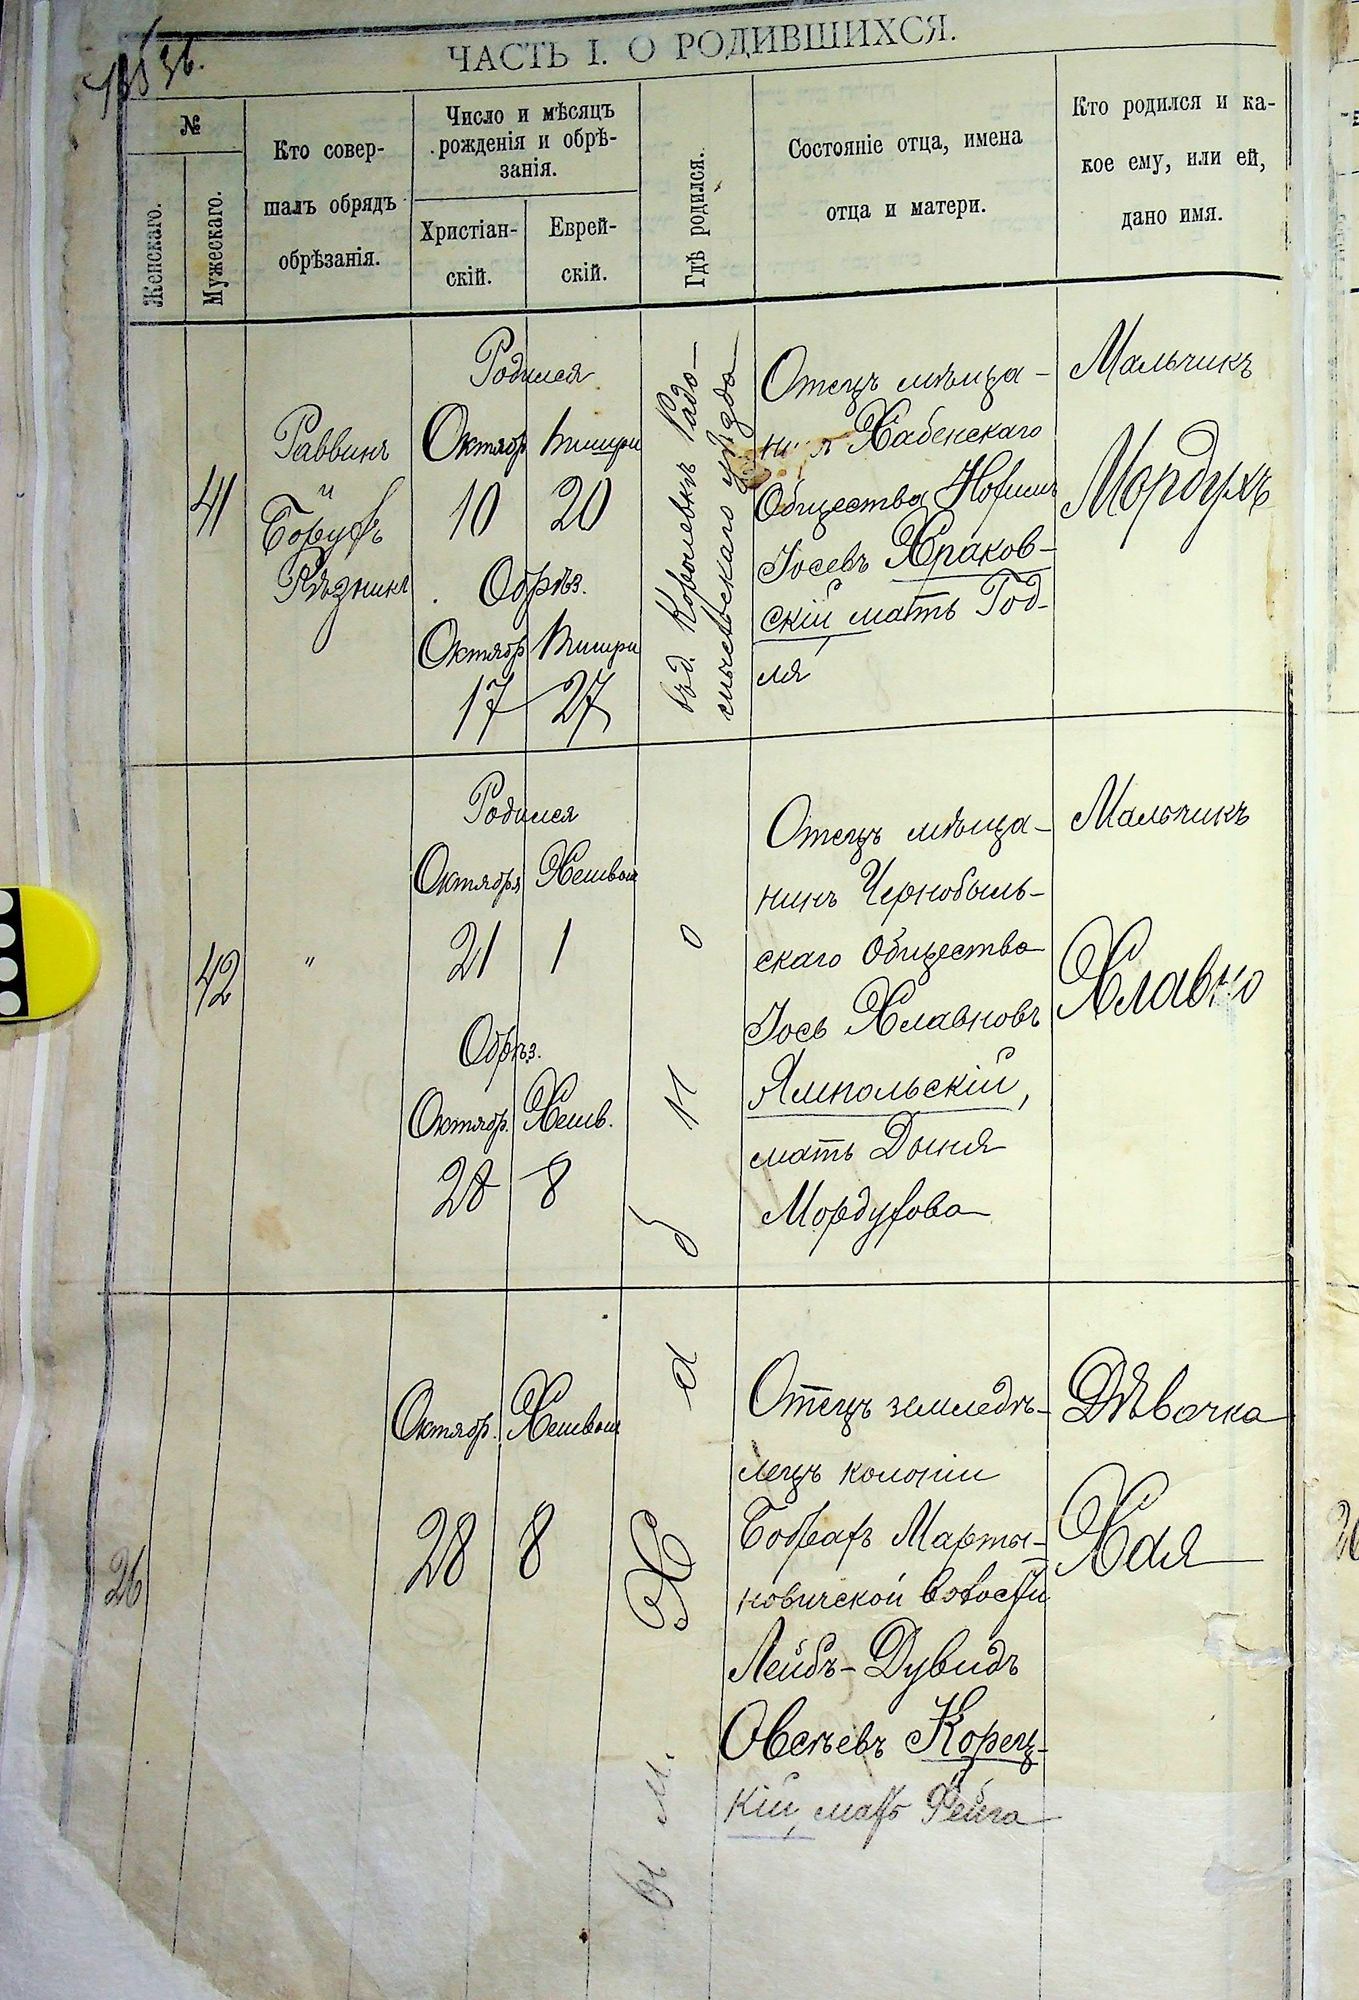 ЧАСТЬ I. О РОДИВШИХСЯ.
№
Женскаго.
Мужескаго.
Кто совер-
шалъ обрядъ
обрѣзанія.
Число и мѣсяцъ
рожденія и обрѣ-
занія.
Христіан-
скій.
Еврей-
скій.
Гдѣ родился.
Состояніе отца, имена
отца и матери.
Кто родился и ка-
кое ему, или ей,
дано имя.
41
Раввинъ
и
Борухъ
Рѣзникъ
Родился
Октябр Тишри
10 20
Обрѣз.
Октябр Тишри
17 27
въ д. Королевкѣ Радо-
мысльскаго уѣзда
Отецъ мѣща-
Хабенскаго
Общества Нохимъ
Іосевъ Храков-
скій, мать Год-
ля
Мальчикъ
Мордухъ
42
"
Родился
Октября Хешвон
21 1
Обрѣз.
Октябр. Хешв.
28 8
Отецъ мѣща-
нинъ Чернобыль-
скаго Общества
Іось Хлавновъ
Ямпольскій,
мать Дыня
Мордухова
Мальчикъ
Хлавно
26
Октябр. Хешвон
28 8
въ м. Хабно
Отецъ земледѣ-
лецъ колоніи
Бобрахъ Марты-
новичской волости
Лейбъ-Дувидъ
Овсѣевъ Корец-
кій, мать Фейга
Дѣвочка
Хая
26